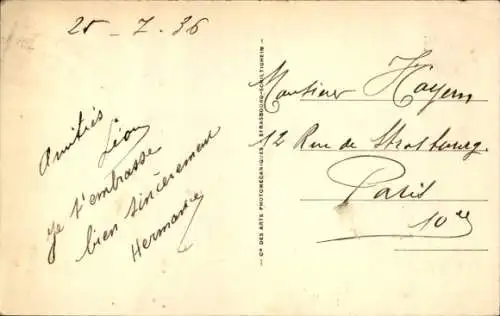 25 - 7. 36
Amitiés
Léon
je t'embrasse
bien sincèrement
Hermance
Cie DES ARTS PHOTOMÉCANIQUES - STRASBOURG-SCHILTIGHEIM
Monsieur Hayem
12 Rue de Strasbourg.
Paris
10e